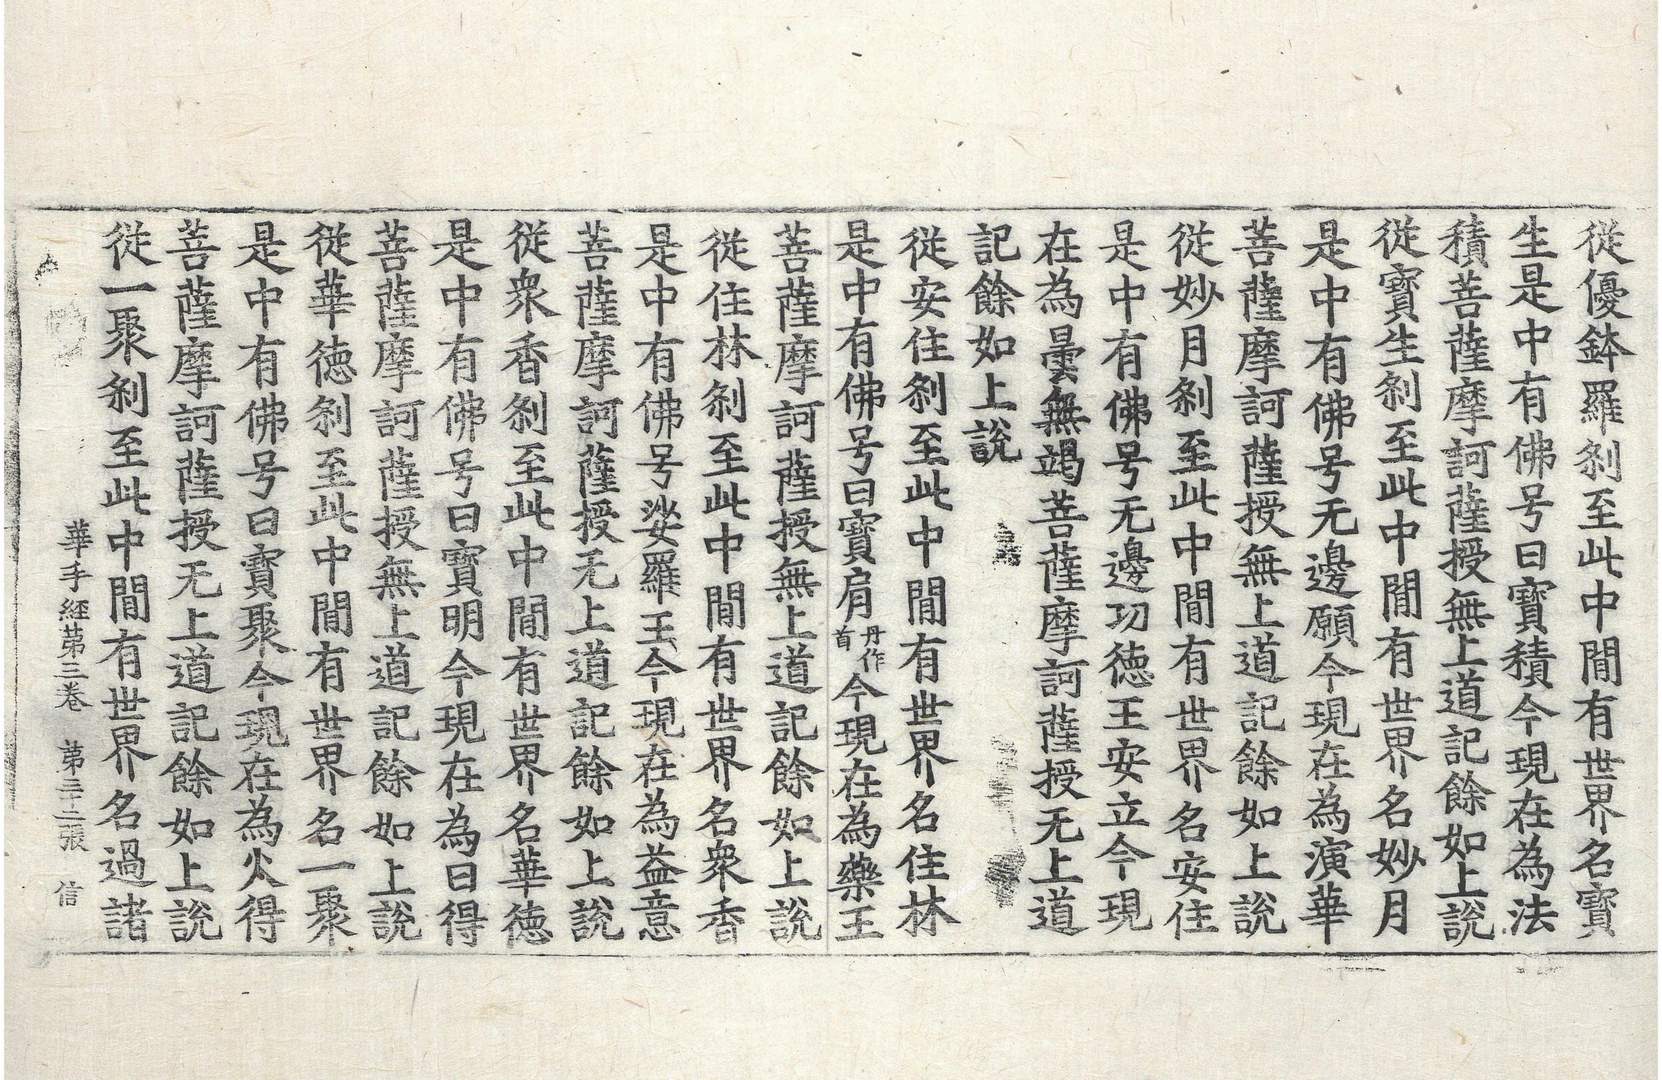 從優鉢羅刹至此中閒有世界名寶
生是中有佛号曰寶積今現在為法
積菩薩摩訶薩授無上道記餘如上說
從寶生刹至此中閒有世界名妙月
是中有佛号无邊願今現在為演華
菩薩摩訶薩授無上道記餘如上說
從妙月刹至此中閒有世界名安住
是中有佛号无邊功德王安立今現
在為曇無竭菩薩摩訶薩授无上道
記餘如上說
從安住刹至此中閒有世界名住林
是中有佛号曰寶肩丹作首今現在為藥王
菩薩摩訶薩授無上道記餘如上說
從住林刹至此中閒有世界名衆香
是中有佛号娑羅王今現在為益意
菩薩摩訶薩授无上道記餘如上說
從衆香刹至此中閒有世界名華德
是中有佛号曰寶明今現在為日得
菩薩摩訶薩授無上道記餘如上說
從華德刹至此中閒有世界名一聚
是中有佛号曰寶聚今現在為火得
菩薩摩訶薩授无上道記餘如上說
從一聚刹至此中閒有世界名過諸
華手經第三卷 第三十二張 信